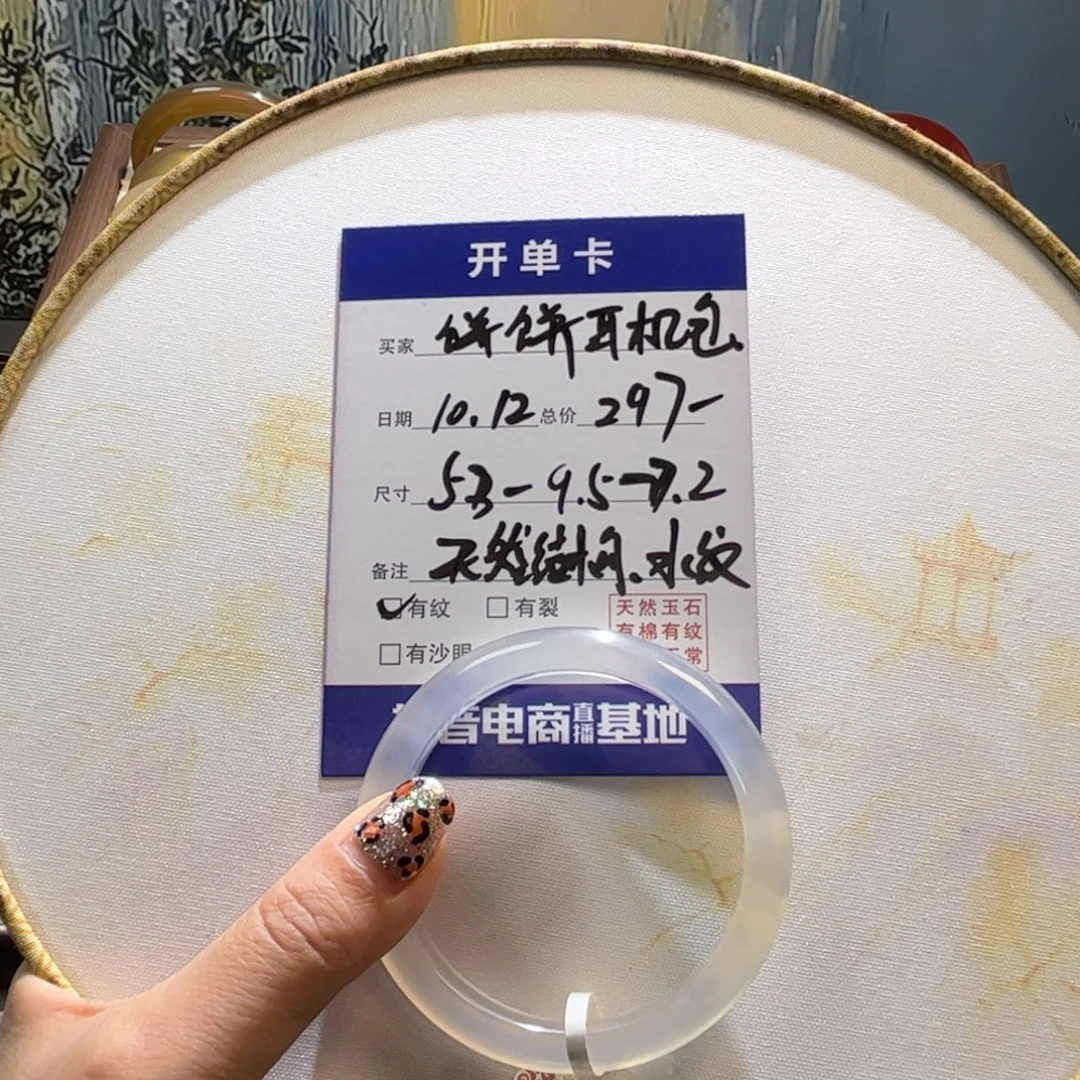 开单卡
买家 饼饼耳机包
日期 10.12 总价 297-
尺寸 53-9.5-7.2
备注 天然结构.水纹
有纹 有裂
有沙眼
天然玉石
有棉有纹
常
音电商直播基地